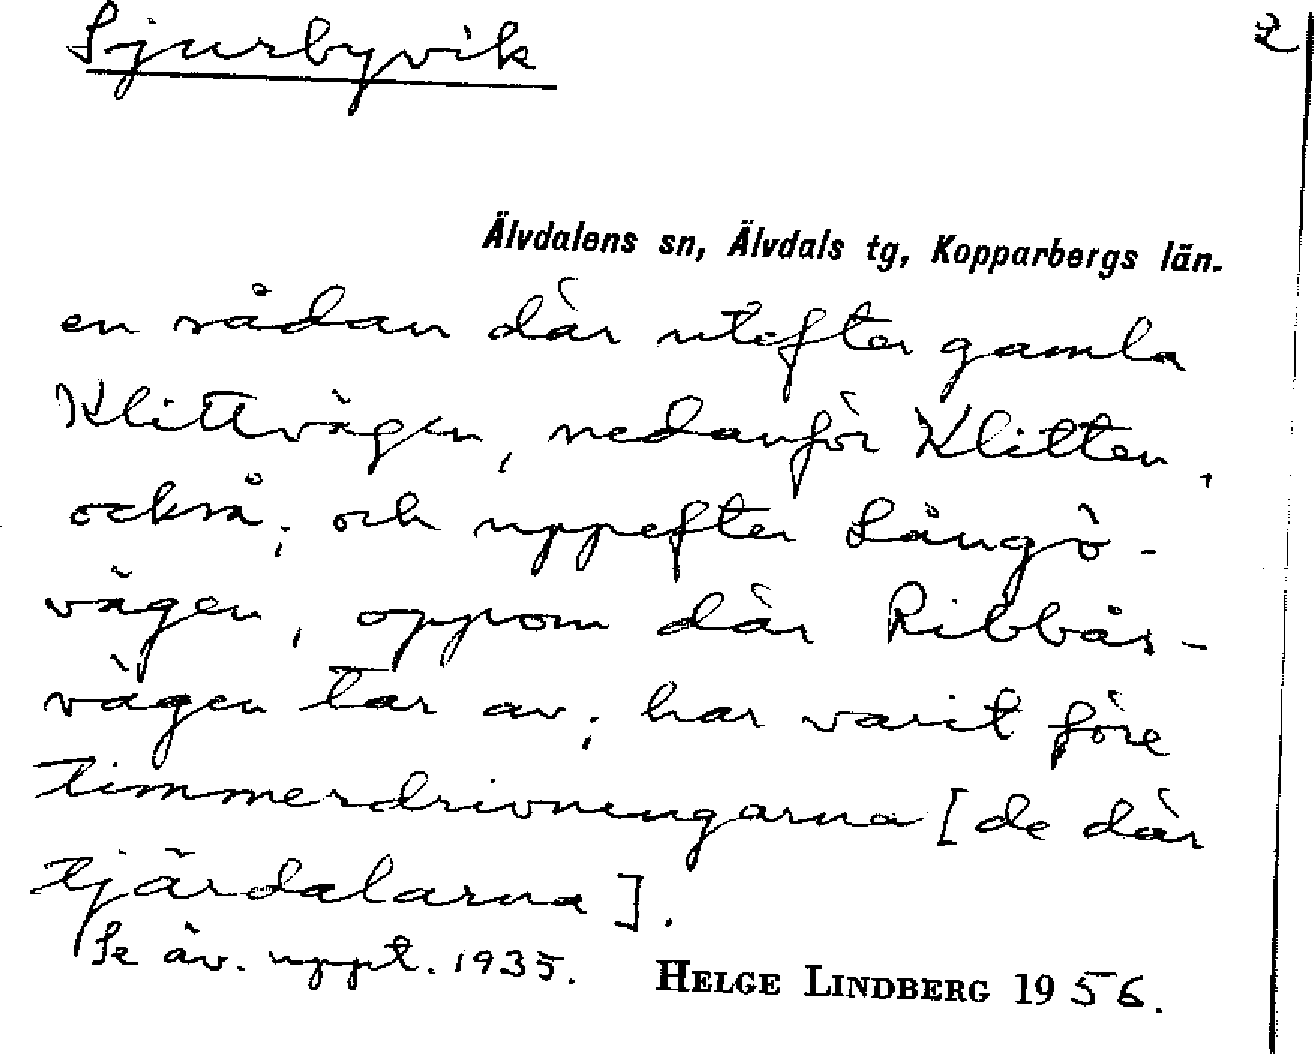 Sjurbyvik 2
Älvdalens sn, Älvdals tg, Kopparbergs län.
en sådan där utefter gamla
Klittvägen, nedanför Klitten,
också; och uppefter Långö-
vägen, oppom där Ribbås-
vägen tar av; har varit före
timmerdrivningarna [de där
tjärdalarna].
Se äv. uppt. 1935. HELGE LINDBERG 1956.